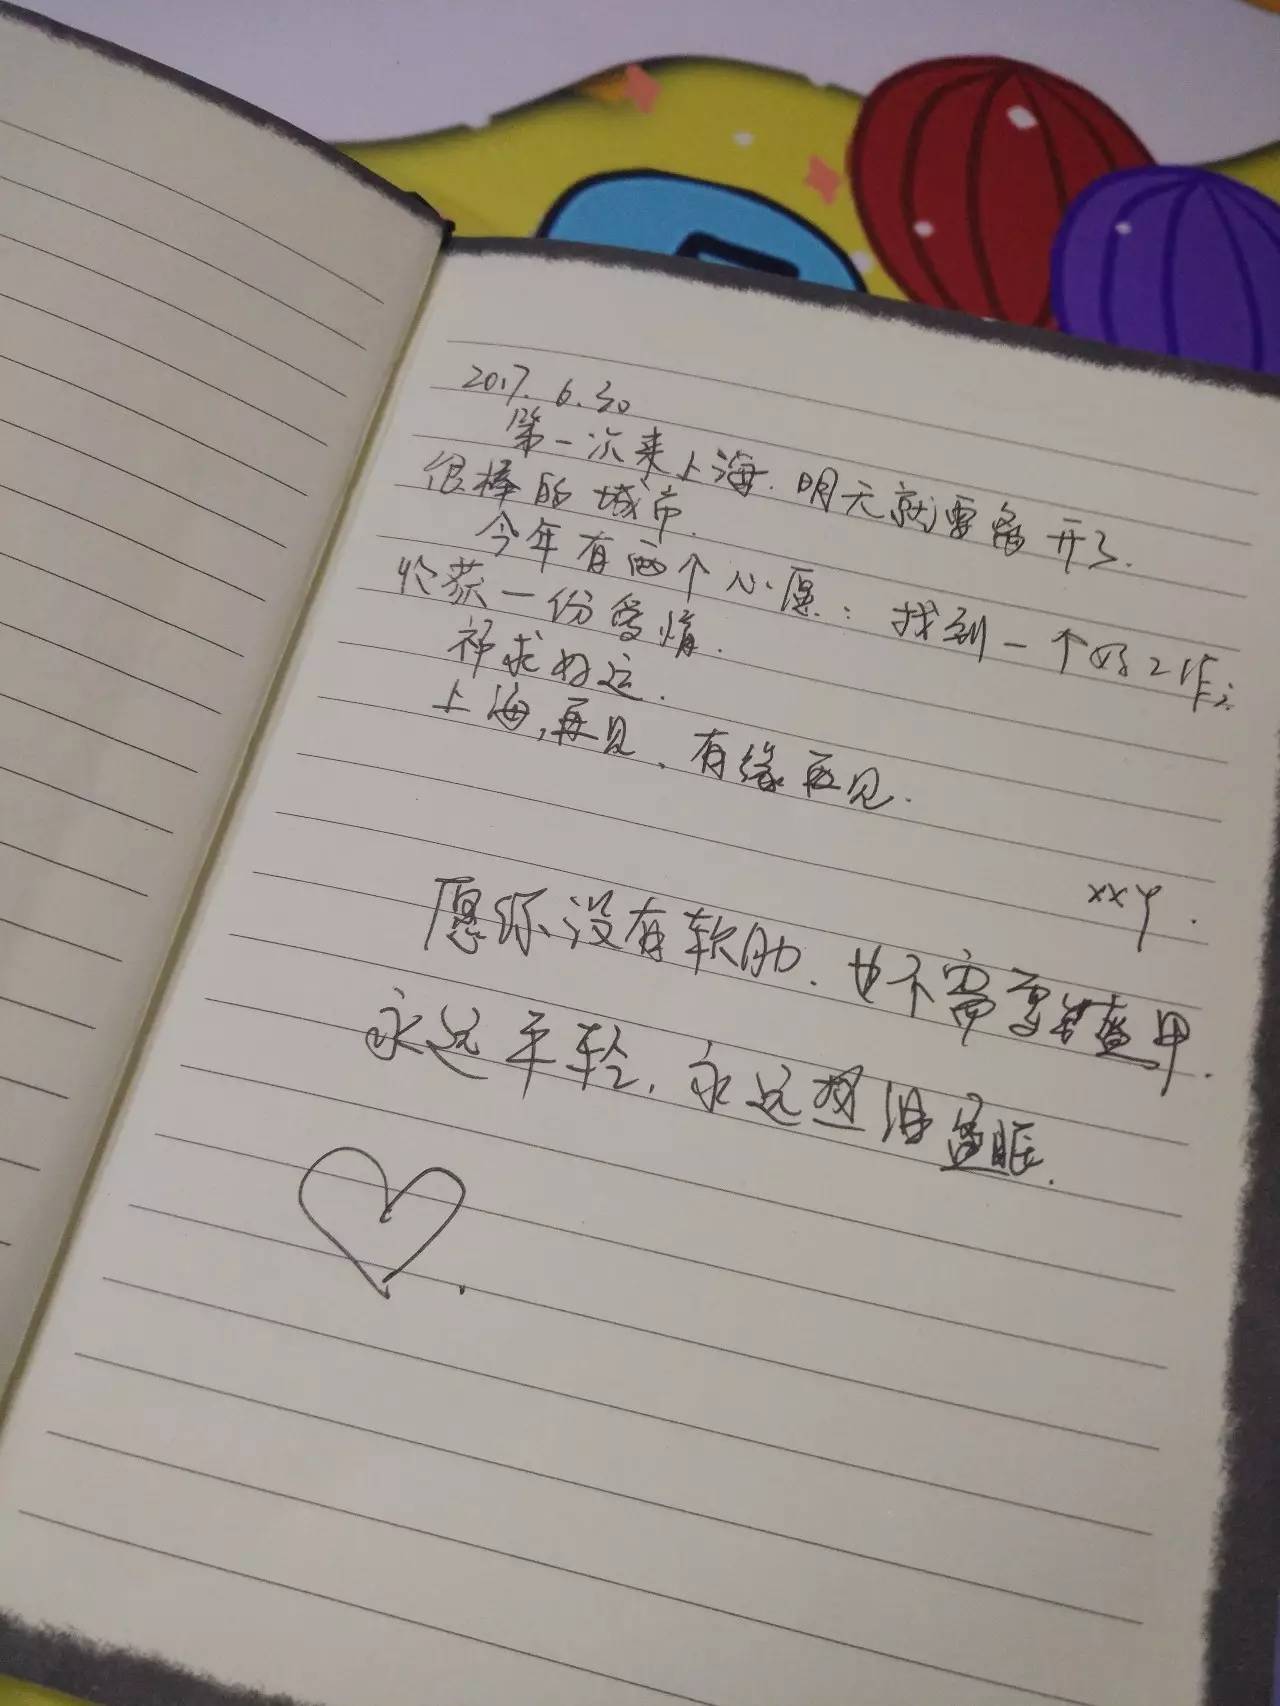 2017. 6. 30
第一次来上海. 明天就要离开了.
很棒的城市.
今年有两个心愿: 找到一个好工作;
收获一份爱情.
祈求好运.
上海,再见. 有缘再见.
xxy.
愿你没有软肋. 也不需要铠甲.
永远年轻. 永远热泪盈眶.